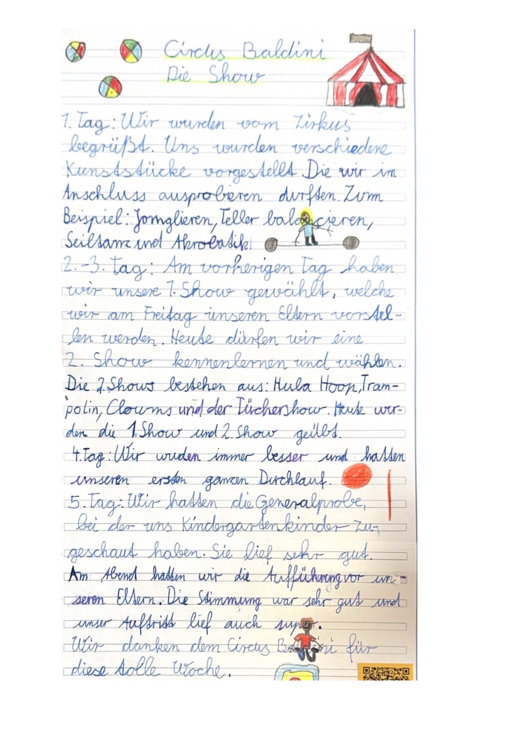 Circus Baldini
Die Show
1. Tag: Wir wurden vom Zirkus
begrüßt. Uns wurden verschiedene
Kunststücke vorgestellt. Die wir im
Anschluss ausprobieren durften. Zum
Beispiel: Jomglieren, Teller balancieren,
Seiltanz und Akrobatik.
2.-3. Tag: Am vorherigen Tag haben
wir unsere 1. Show gewählt, welche
wir am Freitag unseren Eltern vorstel-
len werden. Heute dürfen wir eine
2. Show kennenlernen und wählen.
Die 2 Shows bestehen aus: Hula Hoop, Tram-
polin, Clowns und der Tüchershow. Heute wur-
den die 1. Show und 2. Show geübt.
4. Tag: Wir wuden immer besser und hatten
unseren ersten ganzen Durchlauf.
5. Tag: Wir hatten die Generalprobe,
bei der uns Kindergartenkinder zu-
geschaut haben. Sie lief sehr gut.
Am Abend hatten wir die Aufführung vor un-
seren Eltern. Die Stimmung war sehr gut und
unser Auftritt lief auch super.
Wir danken dem Circus Baldini für
diese tolle Woche.